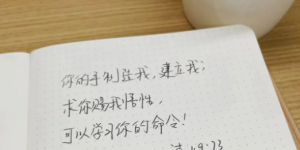 你的手制造我，建立我；
求你赐我悟性，
可以学习你的命令！
诗119:73